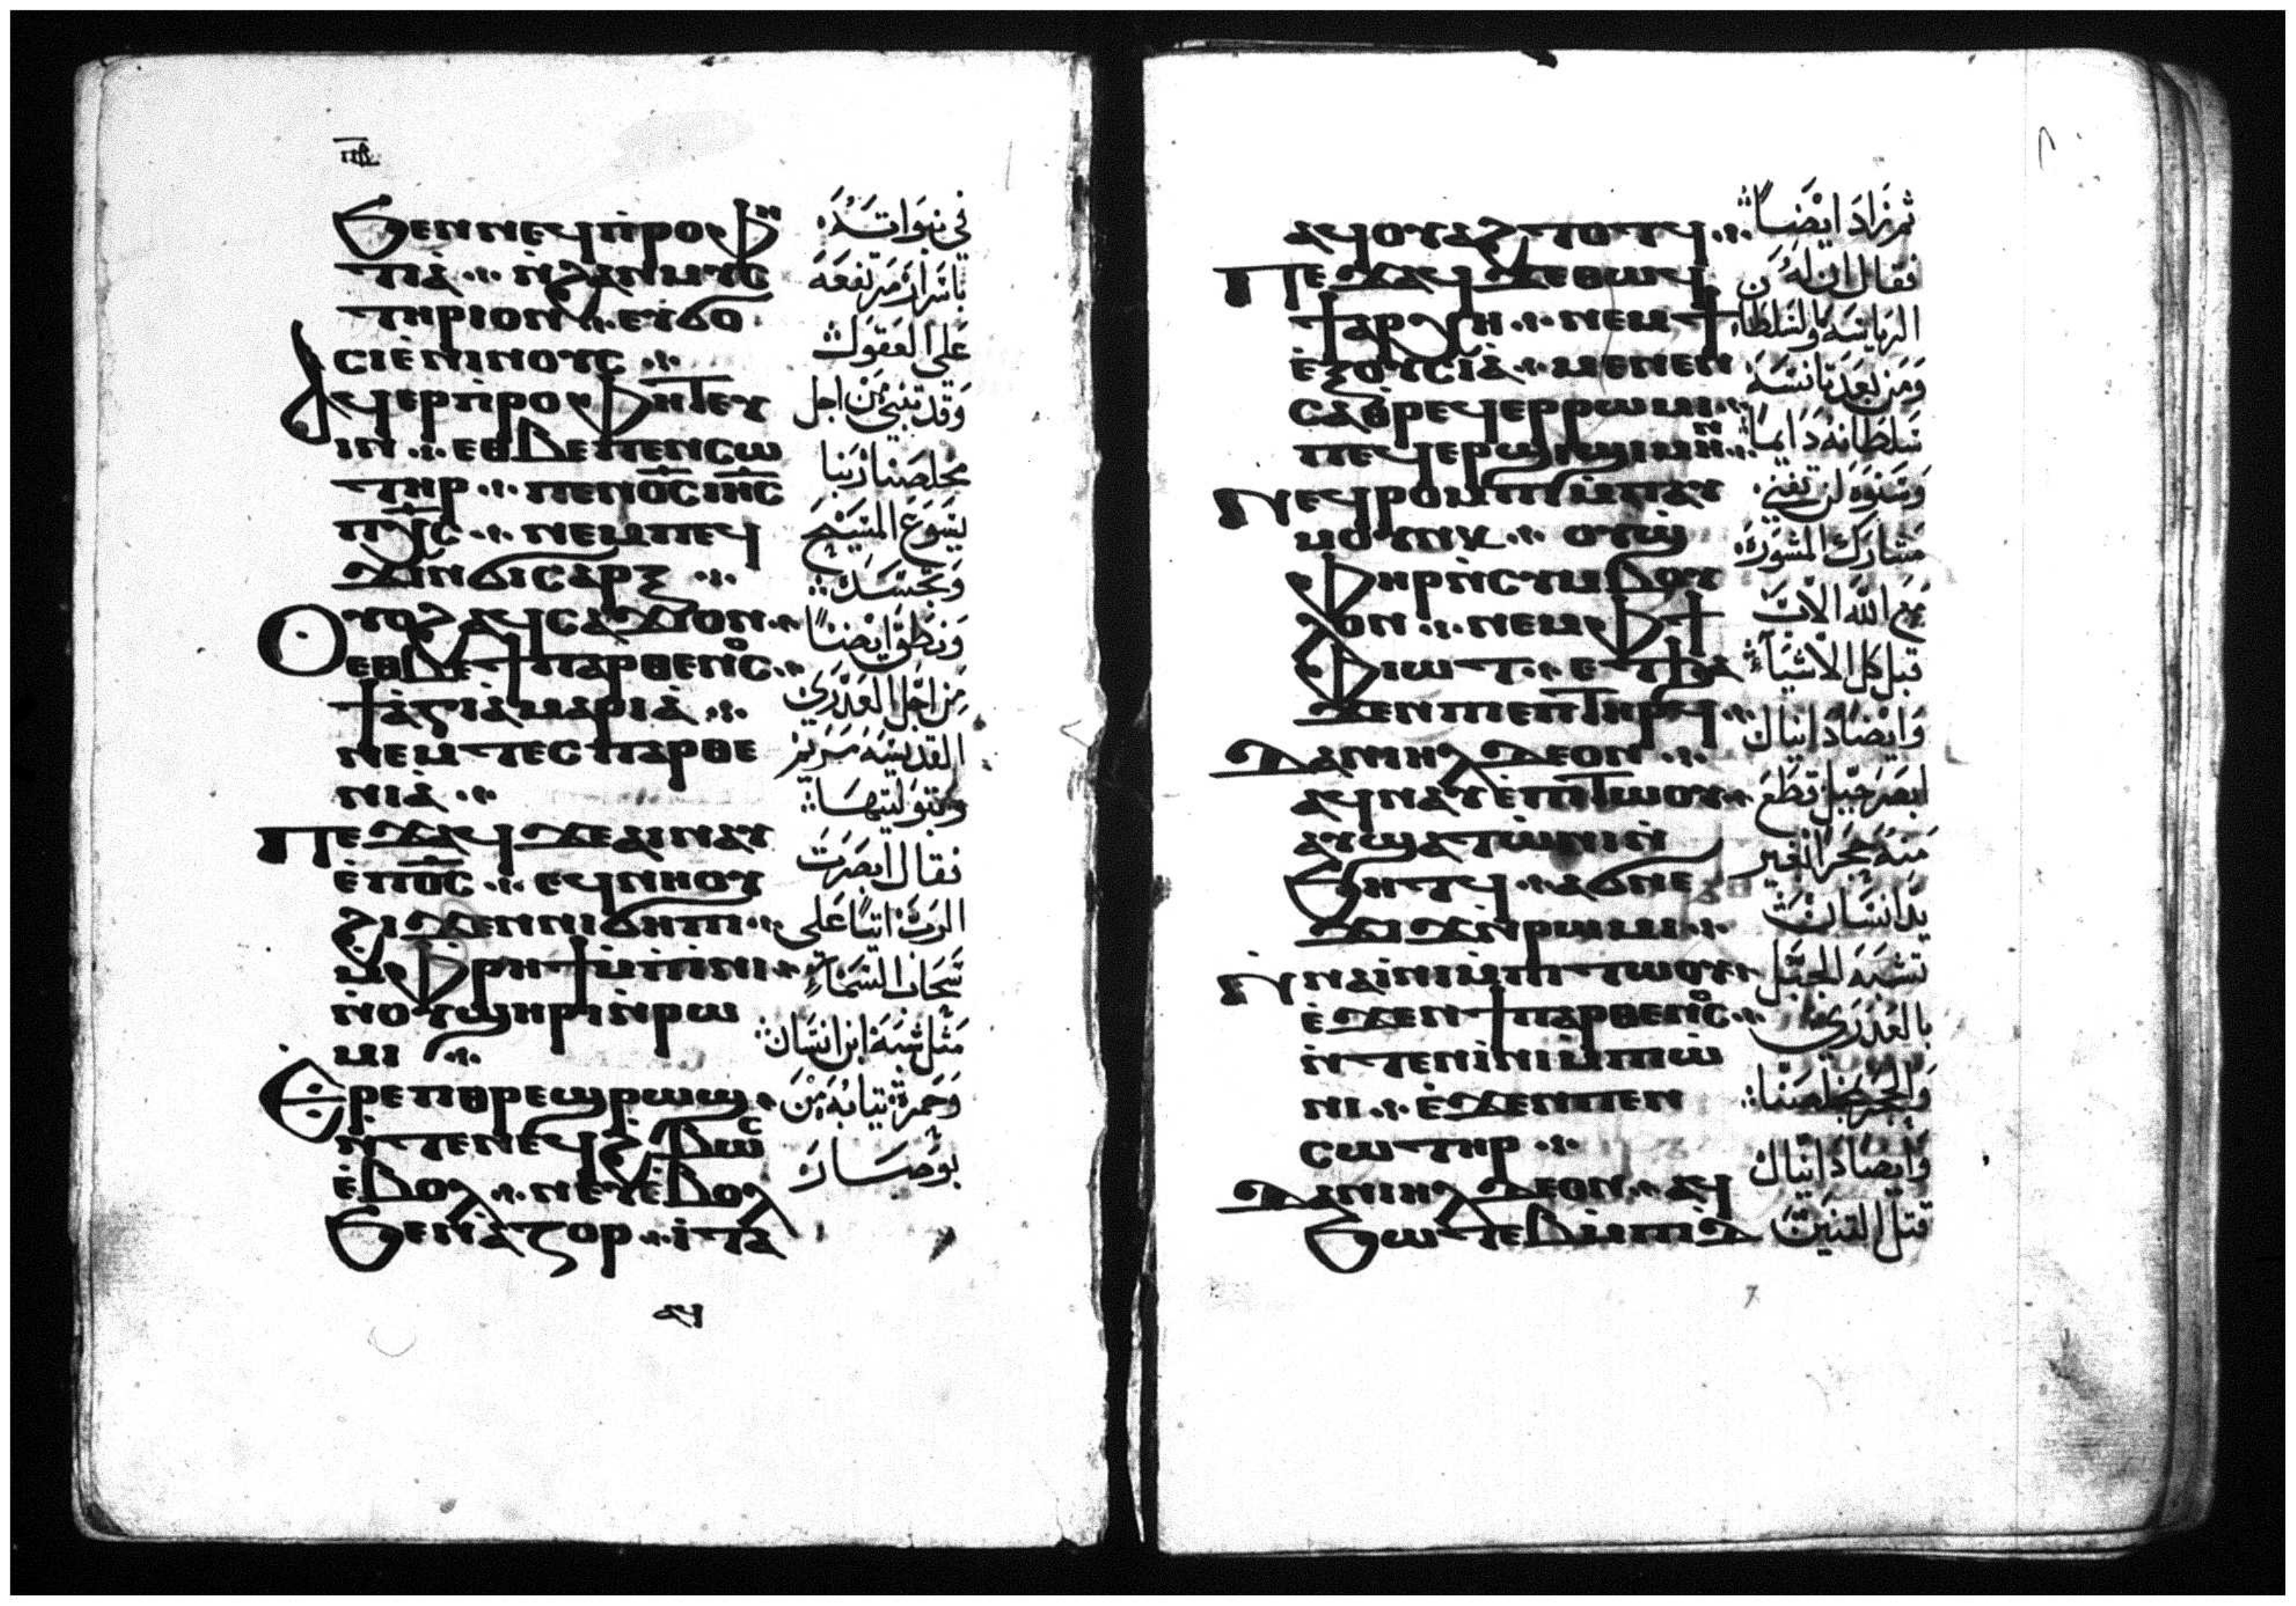 ϧⲉⲛⲛⲉϥⲡ̀ⲣⲟⲫⲏ
ⲧⲓⲁ̀ ⲛ̀ϩⲁⲛⲙⲩⲥ
ⲧⲏⲣⲓⲟⲛ ⲉⲩϭⲟ
ⲥⲓⲉ̀ⲛⲓⲛⲟⲩⲥ
ⲁϥⲉⲣⲡ̀ⲣⲟⲫⲏⲧⲉⲩ
ⲓⲛ ⲉⲑⲃⲉⲡⲉⲛⲥⲱ
ⲧⲏⲣ ⲡⲉⲛⲟ̅ⲥ̅ ⲓⲏ̅ⲥ̅
ⲡⲭ̅ⲥ̅ ⲛⲉⲙⲡⲉϥ
ϫⲓⲛϭⲓⲥⲁⲣⲝ
ⲟⲩⲟϩ ⲁϥⲥⲁϫⲓⲟⲛ
ⲉⲑⲃⲉϯⲡⲁⲣⲑⲉⲛⲟⲥ
ϯⲁ̀ⲅⲓⲁ̀ ⲙⲁⲣⲓⲁ̀
ⲛⲉⲙ ⲧⲉⲥⲡⲁⲣⲑⲉ
ⲛⲓⲁ̀
ⲡⲉϫⲁϥ ϫⲉⲁⲓⲛⲁⲩ
ⲉ̀ⲡⲟ̅ⲥ̅ ⲉϥⲛⲏⲟⲩ
ϩⲓϫⲉⲛⲛⲓϭⲏⲡⲓ
ⲙ̀ⲫⲣⲏϯⲙ̀ⲡⲓ̀ⲛⲓ
ⲛ̀ⲟⲩϣⲏⲣⲓⲛ̀ⲣⲱ
ⲙⲓ
ⲉⲣⲉⲡⲑⲣⲉϣⲣⲱϣ
ⲛ̀ⲧⲉⲛⲉϥϩ̀ⲃⲱⲥ
ⲉ̀ⲃⲟⲗ ⲛⲉⲩⲉ̀ⲃⲟⲗ
ϧⲉⲛⲁ̀ⲍⲟⲣ ⲓ̀ⲧⲁ
ⲁϥ
في نبواته
باسرار مرتفعه
على العقول
وقد تنبي من اجل
مخلصنا ربنا
يسوع المسيح
وتجسده
ونطق ايضاً
من اجل العذري
القديسه مريم
وبتوليتها
فقال ابصرت
الرب اتياً على
سحاب السماء
مثل شبه ابن انسان
وحمرة ثيابه من
بوصار
ⲁϥⲟⲩⲁϩⲧⲟⲧϥ
ⲡⲉϫⲁϥ ϫⲉⲑⲱϥ
ϯⲁⲣⲭⲏ ⲛⲉⲙ ϯ
ⲉ̀ⲝⲟⲩⲥⲓⲁ̀ ⲙⲉⲛⲉⲛ
ⲥⲁⲑⲣⲉϥⲉⲣⲣⲱⲙⲓ
ⲡⲉϥⲉⲣϣⲓϣⲓ ⲙⲏⲛ
ⲛⲉϥⲣⲟⲙⲡⲓ ⲙ̀ⲡⲁⲩ
ⲙⲟⲩⲛⲕ ⲟⲩϣ̀
ⲫⲏⲣⲛ̀ⲥⲩⲙⲃⲟⲩ
ⲗⲟⲛ ⲛⲉⲙⲫϯ
ⲫⲓⲱⲧ ⲉⲧϧⲁ
ϫⲉⲛⲡⲓⲉⲡⲧⲏⲣϥ
ⲇⲁⲛⲓⲏⲗ ⲇⲉⲟⲛ
ⲁϥⲛⲁⲩⲉ̀ⲡⲓⲧⲱⲟⲩ
ⲁⲩϣⲁⲧⲱ̀ⲛⲓⲛ̀
ϧⲏⲧϥ ⲁϭⲛⲉ
ϫⲓϫⲛ̀ⲣⲱⲙⲓ
ⲛⲛⲁⲓ̀ⲛⲓⲙ̀ⲡⲓⲧⲱⲟⲩ
ⲉ̀ϫⲉⲛϯⲡⲁⲣⲑⲉⲛⲟⲥ
ⲛ̀ⲧⲉⲛⲓ̀ⲛⲓⲙ̀ⲡⲓⲱ̀
ⲛⲓ ⲉ̀ϫⲉⲛⲡⲉⲛ
ⲥⲱⲧⲏⲣ
ⲇⲁⲛⲓⲏⲗ ⲇⲉⲟⲛ ⲁϥ
ϧⲱⲧⲉⲃⲙ̀ⲡⲓⲇ̀
ثم زاد ايضاً
فقال ان له
الرياسه والسلطا
ومن بعد تانسه
سلطانه دايماً
وسنوه لن تفني
مشارك المشوره
مع الله الاب
قبل كل الاشيآء
وايضاً دانيال
ابصر جبل قطع
منه حجراً بغير
يد انسان
نشبه الجبل
بالعذري
والحجر بمخلصنا
وايضا دانيال
قتل التنين